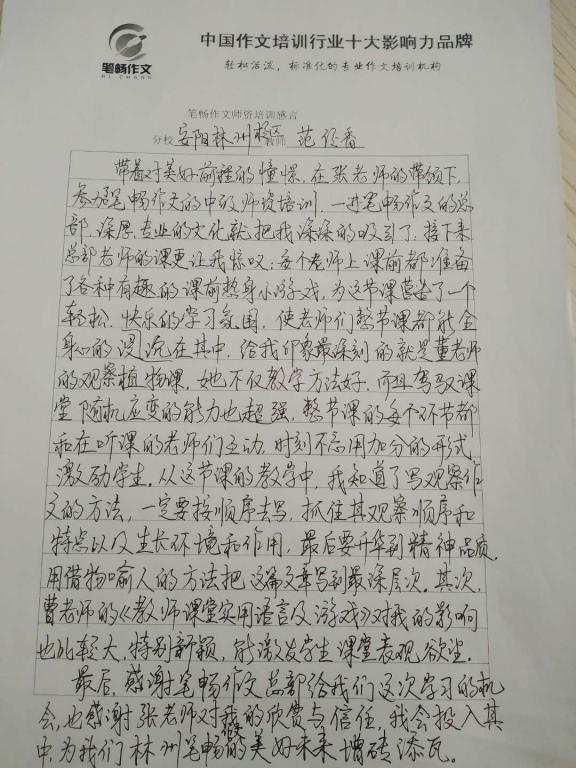 笔畅作文
BI CHANG
中国作文培训行业十大影响力品牌
轻松活泼,标准化的专业作文培训机构
笔畅作文师资培训感言
分校 安阳林州校区 教师 范
带着对美好前程的憧憬,在张老师的带领下,
参加笔畅作文的中级师资培训,一进笔畅作文的总
部,深厚专业的文化就把我深深的吸引了,接下来
总部老师的课更让我惊叹:每个老师上课前都准备
了各种有趣的课前热身小游戏,为这节课营造了一个
轻松、快乐的学习氛围,使老师们整节课都能全
身心的浸沉在其中,给我印象最深刻的就是董老师
的观察植物课,她不仅教学方法好,而且驾驭课
堂随机应变的能力也超强,整节课的每个环节都
和在听课的老师们互动,时刻不忘用加分的形式
激励学生。从这节课的教学中,我知道了写观察作
文的方法,一定要按顺序去写,抓住其观察顺序和
特点以及生长环境和作用,最后要升华到精神品质,
用借物喻人的方法把这篇文章写到最深层次。其次,
曹老师的《教师课堂实用语言及游戏》对我的影响
也比较大,特别新颖,能激发学生课堂表现欲望。
最后,感谢笔畅作文总部给我们这次学习的机
会,也感谢张老师对我的欣赏与信任,我会投入其
中,为我们林州笔畅的美好未来增砖添瓦。